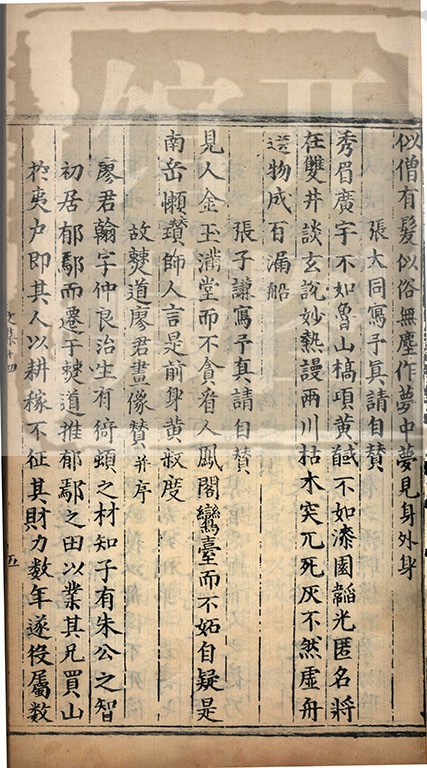 似僧有髮似俗無塵作夢中夢見身外身
張大同寫予真請自贊
秀眉廣宇不如魯山槁項黃馘不如漆園韜光匿名將
在雙井談玄說妙熱謾兩川枯木突兀死灰不然虛舟
送物成百漏船
張子謙寫予真請自贊
見人金玉滿堂而不貪看人鳳閣鸞臺而不妬自疑是
南岳懶瓚師人言是前身黃叔度
故僰道廖君畫像贊并序
廖君翰字仲良治生有猗頓之材知子有朱公之智
初居郁鄢而遷于僰道推郁鄢之田以業其兄買山
於夷户即其人以耕稼不征其財力數年遂役屬數
文集十四
五